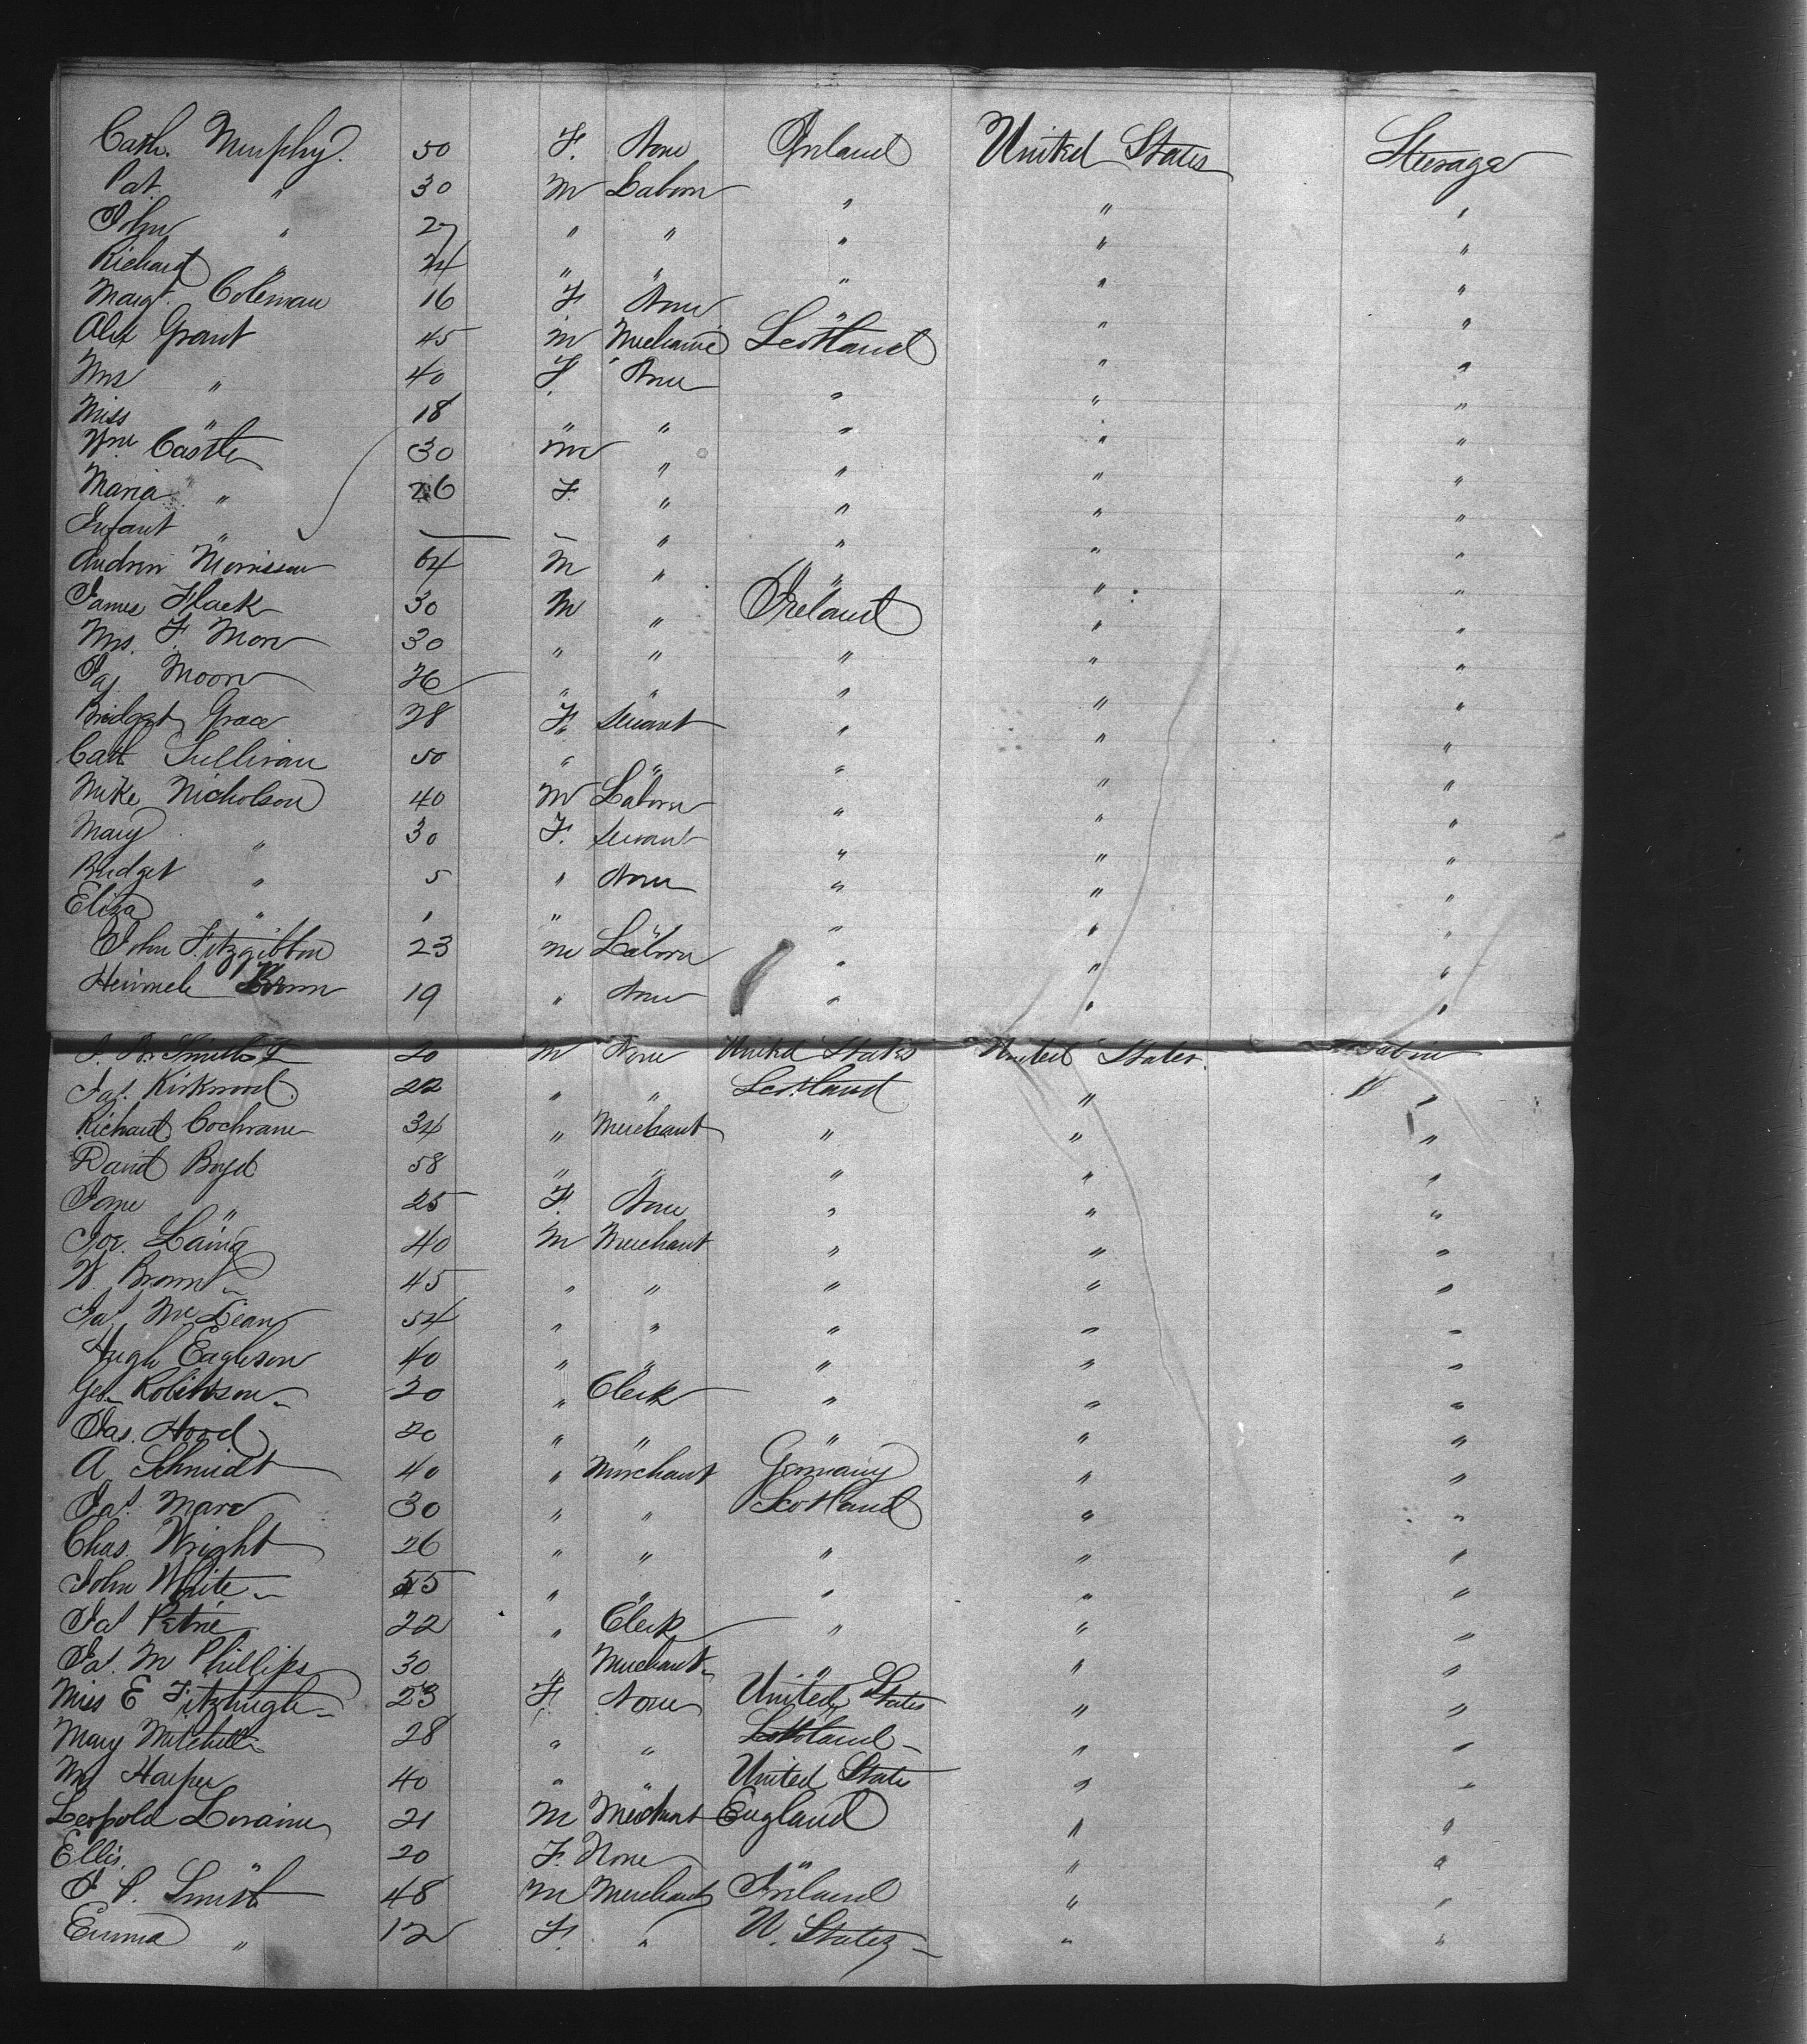 Cath. Murphy. 50 F. None Ireland United States Steerage
Pat " 30 M Laborer " " "
John " 27 " " " " "
Richard " 24 " " " " "
Margt. Coleman 16 F None " " "
Alex Grant 45 M Mechanic Scotland " "
Mrs " 40 F. None " " "
Miss " 18 " " " " "
Wm Castle 30 M " " " "
Maria " 26 F. " " " "
Infant " — – " " " "
Andrew Morrison 64 M " " " "
James Flack 30 M " Ireland " "
Mrs. F. More 30 " " " " "
Jas Moore 26 " " " " "
Bridget Grace 28 F. Servant " " "
Cath Sullivan 50 " " " " "
Mike Nicholson 40 M Laborer " " "
Mary " 30 F. Servant " " "
Bridget " 5 " None " " "
Eliza " 1 " " " "
John Fitzgibbon 23 M Laborer " " "
Brown 19 " None " " "
Smith 20 M None United States United States Cabin
Jas. Kirkwood. 22 " " Scotland " "
Richard Cochrane 34 " Merchant " " "
David Boyd 58 " " " " "
" 25 F. None " " "
Jos. Laing 40 M Merchant " " "
W. Brown 45 " " " " "
Jas McLean 54 " " " " "
Hugh Eagleson 40 " " " " "
Geo. Robinson 20 " Clerk " " "
Jas. Hood 20 " " " " "
A Schmidt 40 " Merchant Germany " "
Jas. Marr 30 " " Scotland " "
Chas. Wright 26 " " " " "
John White 55 " " " " "
Jas Petrie 22 " Clerk " " "
Jas. M Phillips 30 " Merchant " " "
Miss E Fitzhugh 23 F. None United States " "
Mary Mitchell 28 " " Scotland " "
Harper 40 " " United States " "
Leopold Loraine 21 M Merchant England " "
Ellis. " 20 F. None " " "
J P. Smith 48 M Merchant Ireland " "
Emma " 12 F. " U. States " "